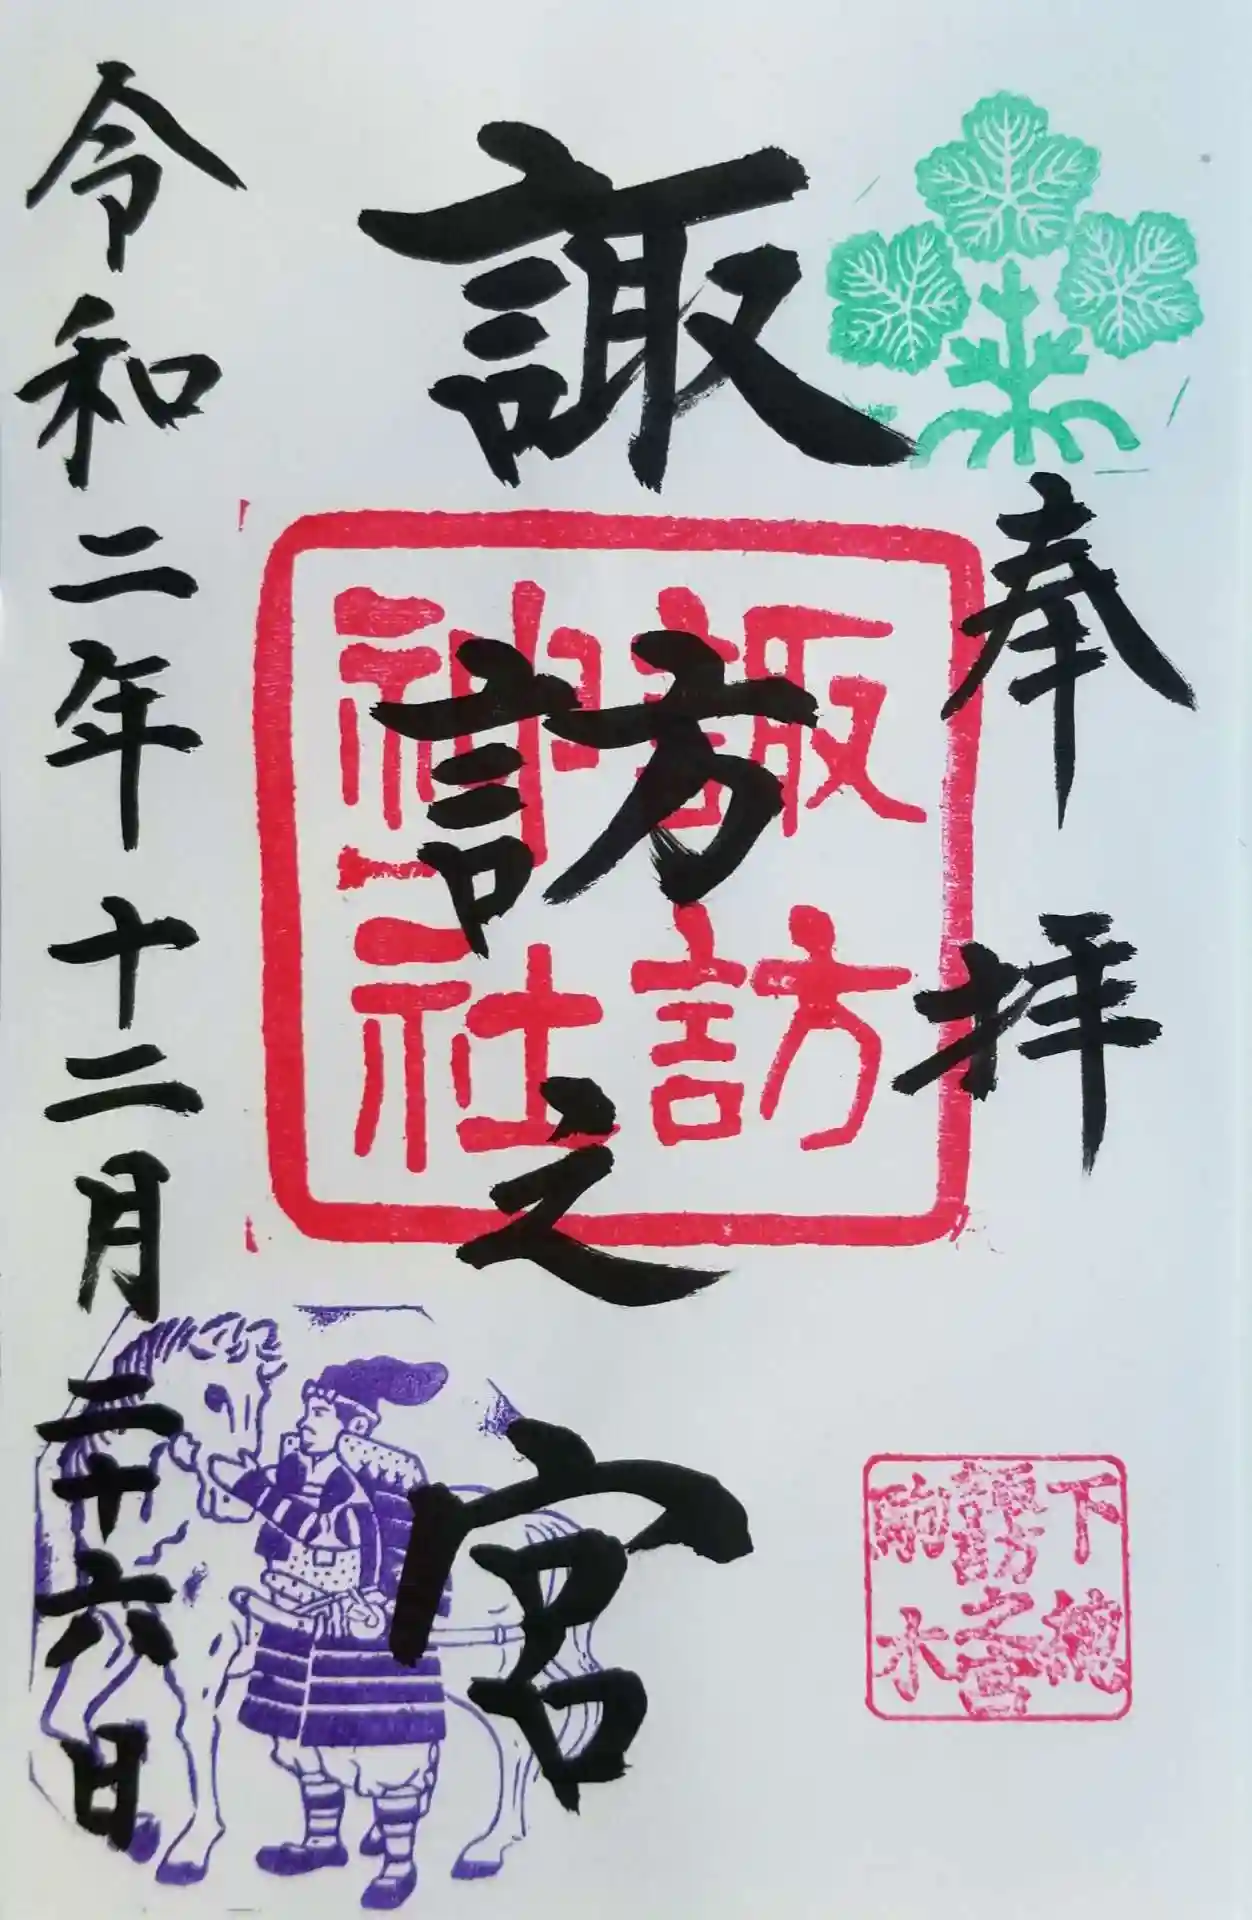 奉拝
諏訪之宮
諏訪
神社
下
諏訪之宮
駒木
令和二年十二月二十六日